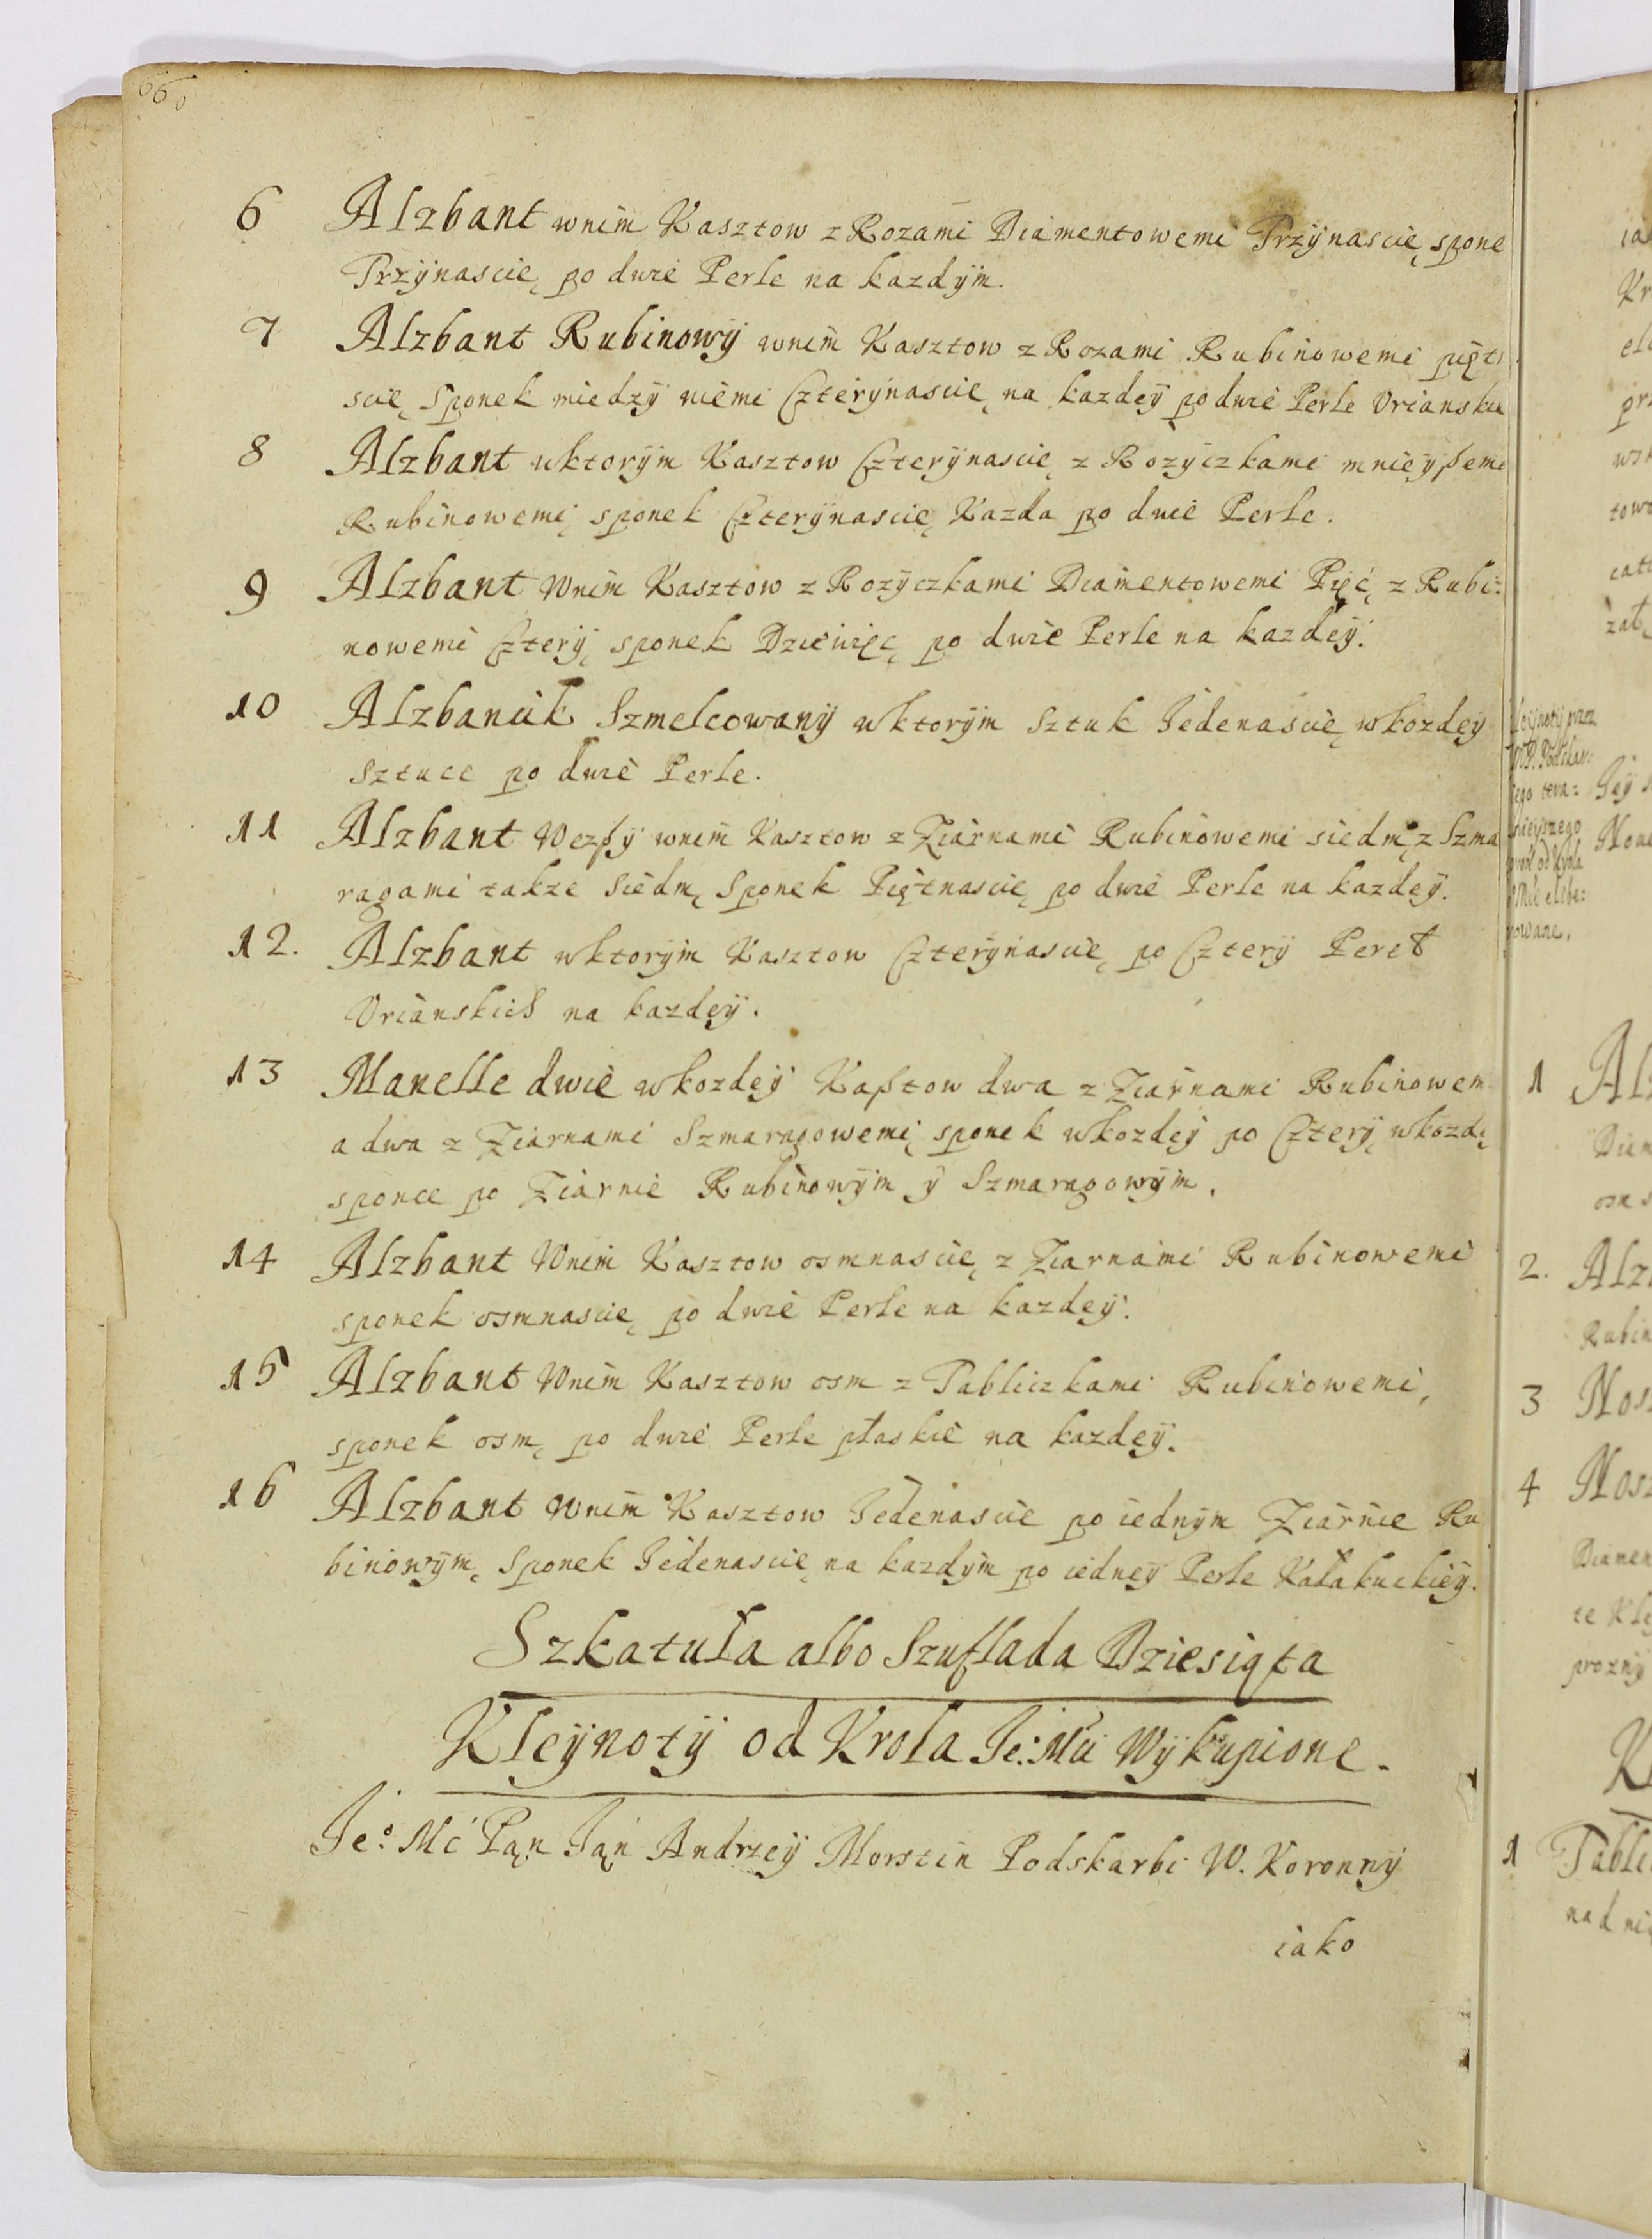 660
6 Alzbant wnim Kasztow z Rozami Diamentowemi Trzÿnascię spone
Trzÿnascię po dwie Perle na kazdÿm.
7 Alzbant Rubinowÿ wnim Kasztow z Rozami Rubinowemi pięt
scię Sponek miedzÿ niemi Czterÿnascie, na kazdeÿ po dwie Perle Urianskie
8 Alzbant wktorÿm Kasztow Czterÿnascie z Rozÿczkami mnieÿßemi
Rubinowemi, sponek Czterÿnascie, Kazda po dwie Perle.
9 Alzbant Wnim Kasztow z Rozÿczkami Diamentowemi Pięć, z Rubi:
nowemi Czterÿ, sponek Dziewięc, po dwie Perle na kazdeÿ.
10 Alzbancik Szmelcowanÿ wktorÿm Sztuk Iedenascie, wkozdeÿ
Sztuce po dwie Perle.
11 Alzbant Wezßÿ wnim Kasztow z Ziarnami Rubinowemi siedm, z Szma
ragami takze Siedm, Sponek Piętnascie, po dwie Perle na kazdeÿ.
12. Alzbant wktorÿm Kasztow Czterÿnascie, po Czterÿ Pereł
Urianskich na kazdeÿ.
13 Manelle dwie wkozdeÿ Kaßtow dwa z Ziarnami Rubinowem
a dwa z Ziarnami Szmaragowemi, sponek wkozdeÿ po Czterÿ, wkozde
sponce po Ziarnie Rubinowÿm ÿ Szmaragowÿm.
14 Alzbant Wnim Kasztow osmnascie, z Ziarnami Rubinowemi
sponek osmnascie, po dwie Perle na kazdeÿ.
15 Alzbant Wnim Kasztow osm z Tabliczkami Rubinowemi,
sponek osm, po dwie Perle płaskie na kazdeÿ.
16 Alzbant Wnim Kasztow Iedenascie po iednÿm Ziarnie Ru
binowÿm, Sponek Iedenascie, na kazdÿm po iedneÿ Perle Kałakuckieÿ.
Szkatuła albo Szuflada Dziesiąta
Kleÿnotÿ od Krola Je: Mci Wÿkupione.
Je: Mć Pąn Jąn Andrzeÿ Morstin Podskarbi W. Koronnÿ
iako
1 Al
2. Alz
Rubin
3 Nos
4 Nosz
Diamen
te Kle
proznÿ
1 Tabli
nad ni